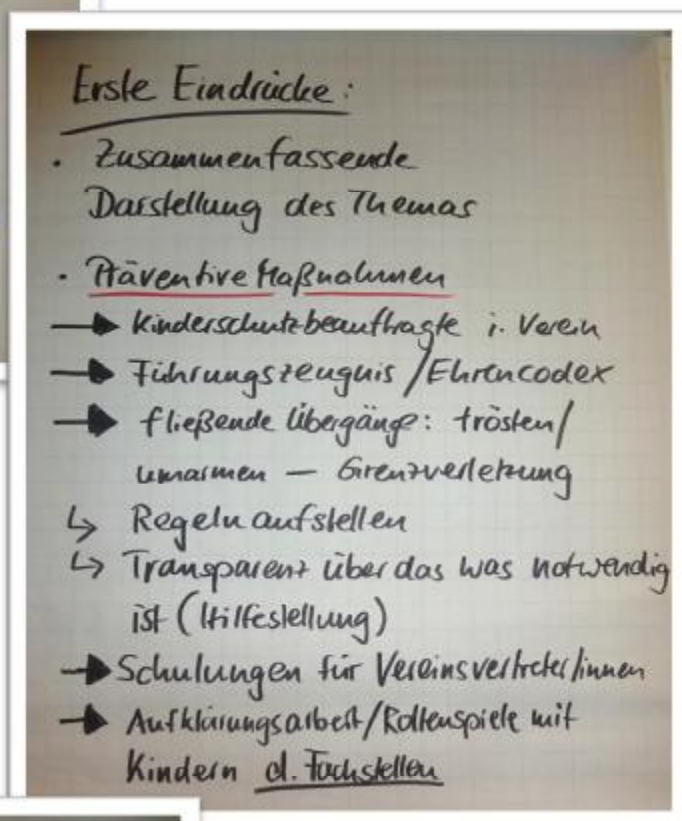 Erste Eindrücke:
• Zusammenfassende
Darstellung des Themas
• Präventive Maßnahmen
→ Kinderschutzbeauftragte i. Verein
→ Führungszeugnis / Ehrencodex
→ fließende Übergänge: trösten/
umarmen — Grenzverletzung
↳ Regeln aufstellen
↳ Transparenz über das was notwendig
ist (Hilfestellung)
→ Schulungen für Vereinsvertreter/innen
→ Aufklärungsarbeit/Rollenspiele mit
Kindern d. Fachstellen